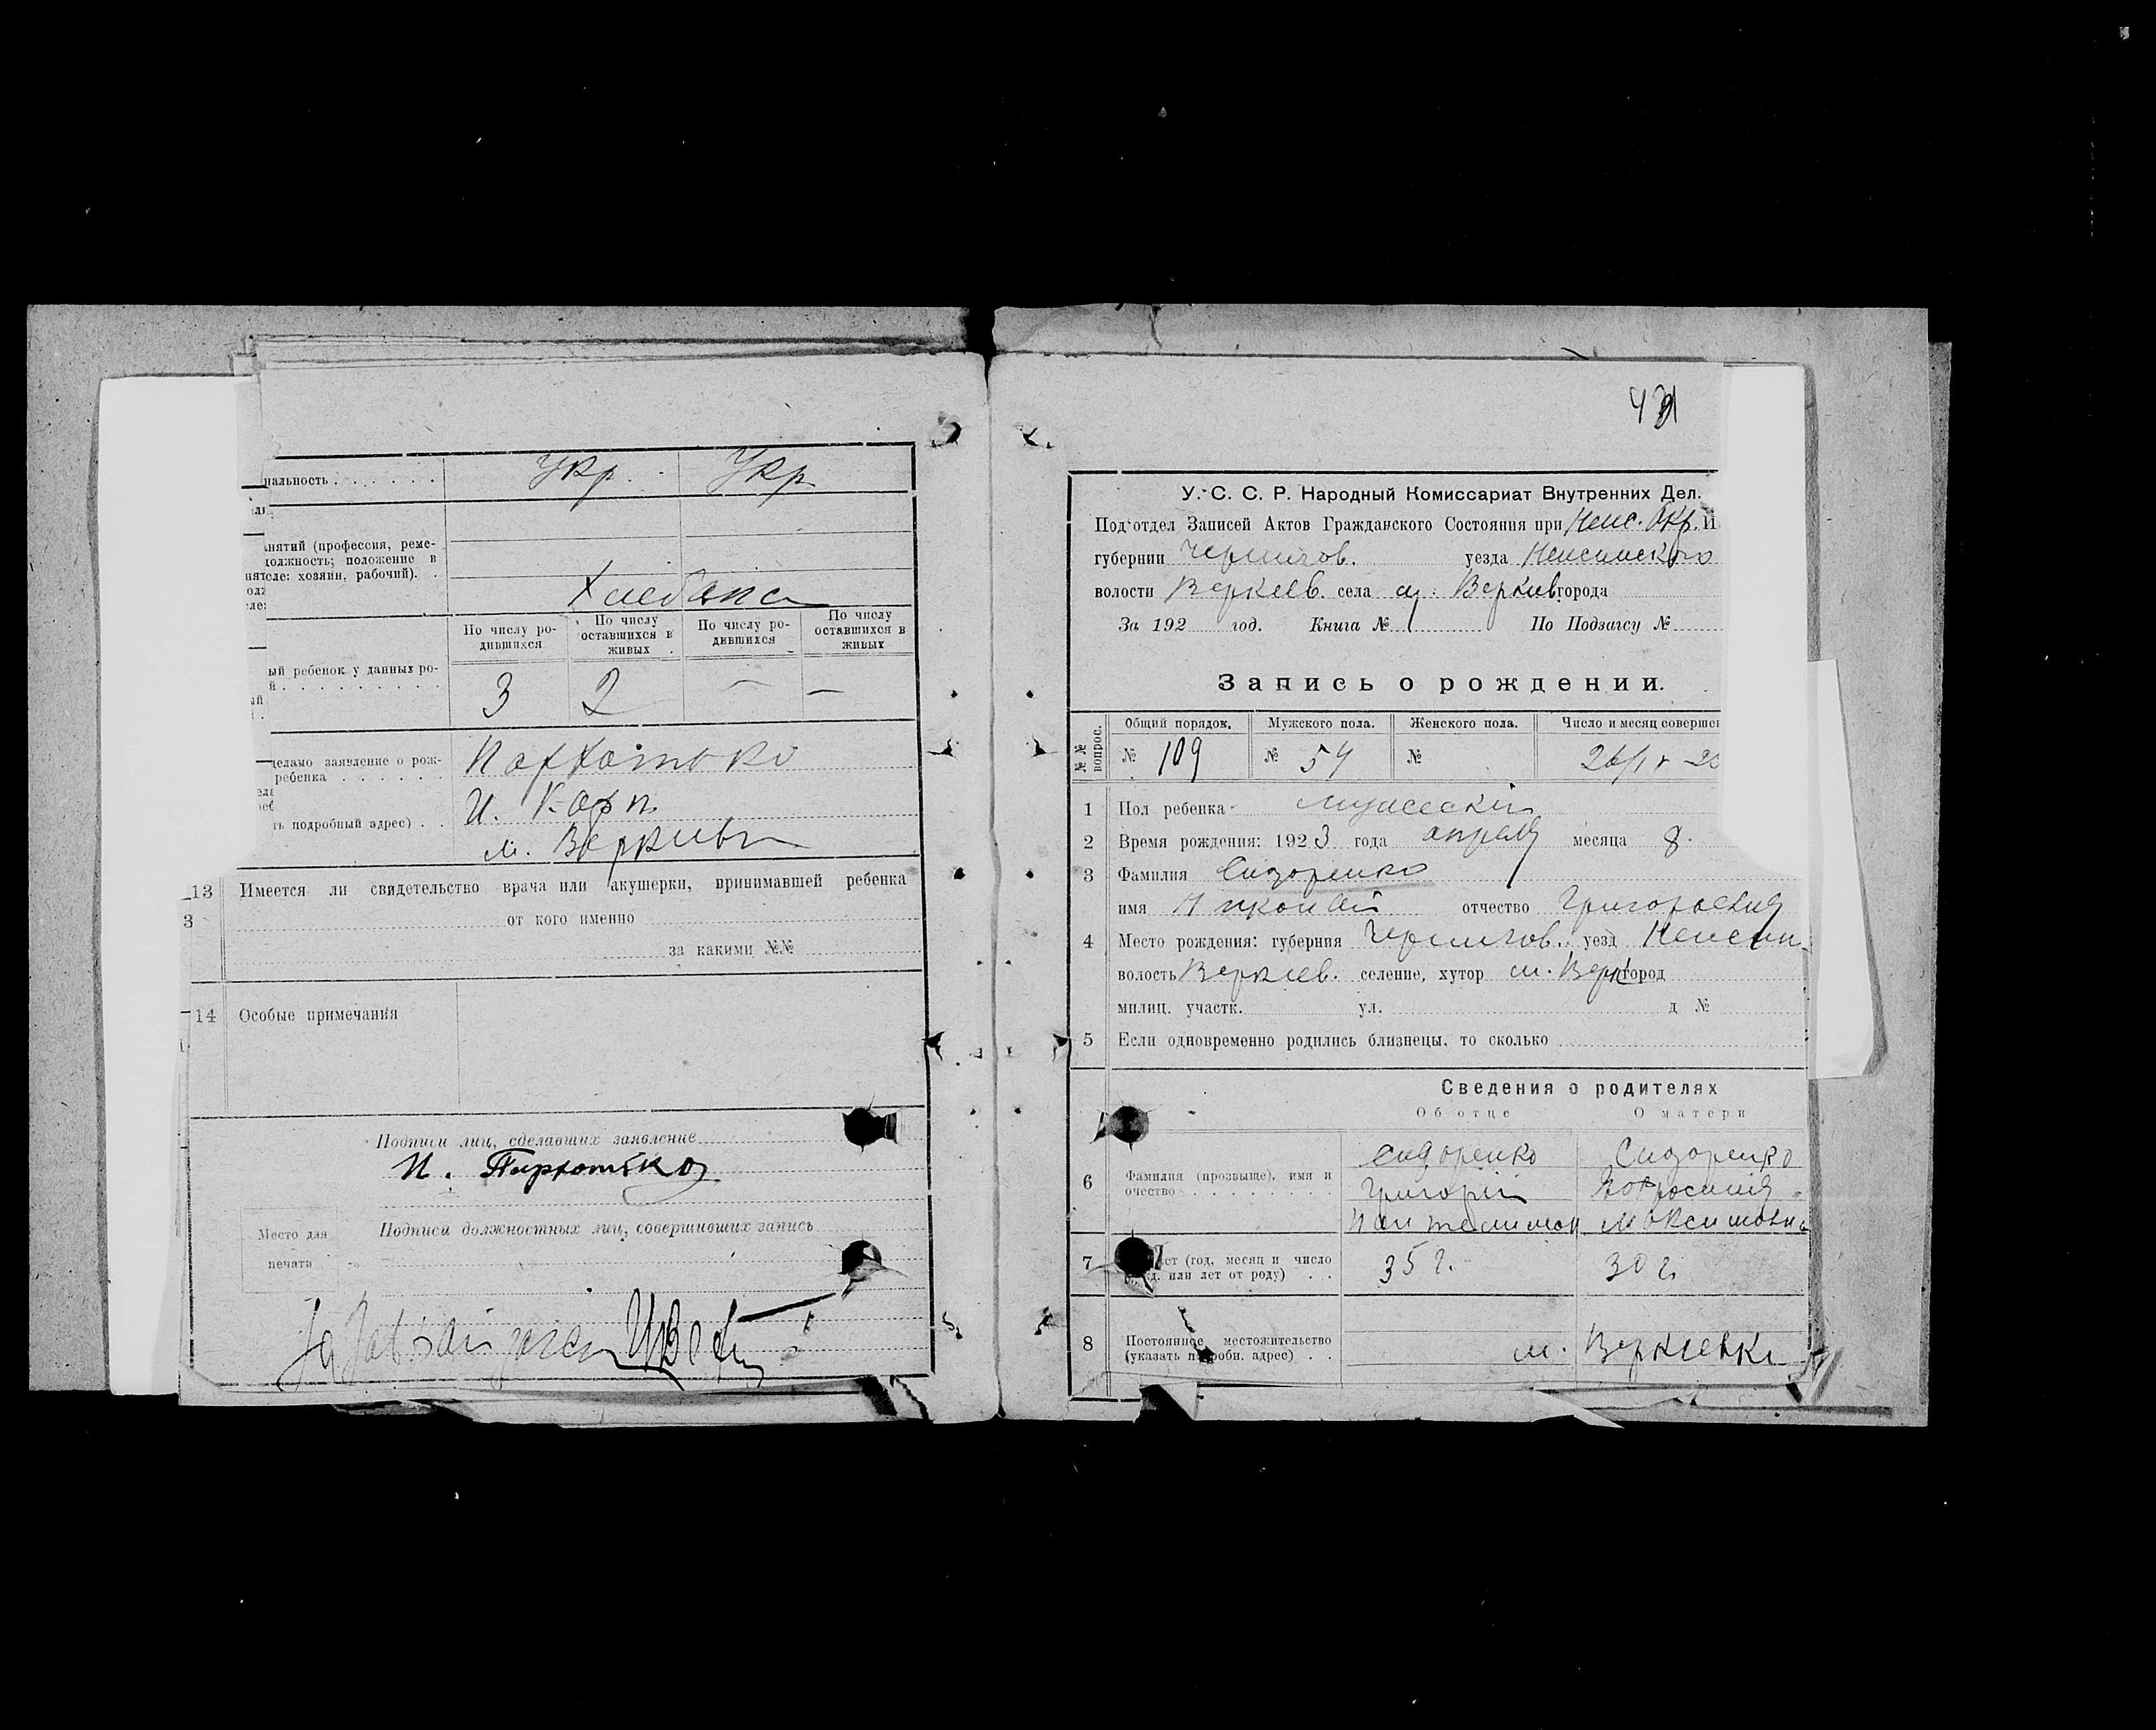 нальность . . . . . . Укр. Укр.
нятий (профессия, реме-
должность; положение в
хозяин, рабочий). .
Хлебапа
По числу ро-
дившихся
По числу
оставшихся в
живых
По числу ро-
дившихся
По числу
оставшихся в
живых
ый ребенок у данных ро-
й . . . . . . . . . 3 2 — —
деламо заявление о рож-
ребенка . . . . . .
И. Карп.
ть подробный адрес) . . м. Веркиевы
13 Имеется ли свидетельство врача или акушерки, принимавшей ребенка
3 от кого именно
за какими №№
14 Особые примечания
Подписи лиц, сделавших заявление
И. Пархоменко
Место для
печати
Подписи должностных лиц, совершивших запись
У. С. С. Р. Народный Комиссариат Внутренних Дел.
Под'отдел Записей Актов Гражданского Состояния при Неж. Окр. И
губернии Чернигов. уезда Неженского
волости Веркиев. села м. Веркиев города
За 192 год. Книга № По Подзагсу №
Запись о рождении.
№№ вопрос.
Общий порядок. Мужского пола. Женского пола. Число и месяц совершен
№ 109 № 54 №
1 Пол ребенка мужеский
2 Время рождения: 1923 года апреля месяца 8.
3 Фамилия Сидоренко
имя Николай отчество Григорьевич
4 Место рождения: губерния Чернигов. уезд Нежин.
волость Веркиев. селение, хутор м. Верк город
милиц. участк. ул. д №
5 Если одновременно родились близнецы, то сколько
Сведения о родителях
Об отце О матери
6 Фамилия (прозвище), имя и
очество . . . . . . .
Сидоренко Сидоренко
Григорий
Пантелимон Максимовна
7 ст (год, месяц и число
д. или лет от роду) . . 35 г. 30 г.
8 Постоянное местожительство
(указать подробн. адрес) . . м. Веркиевка